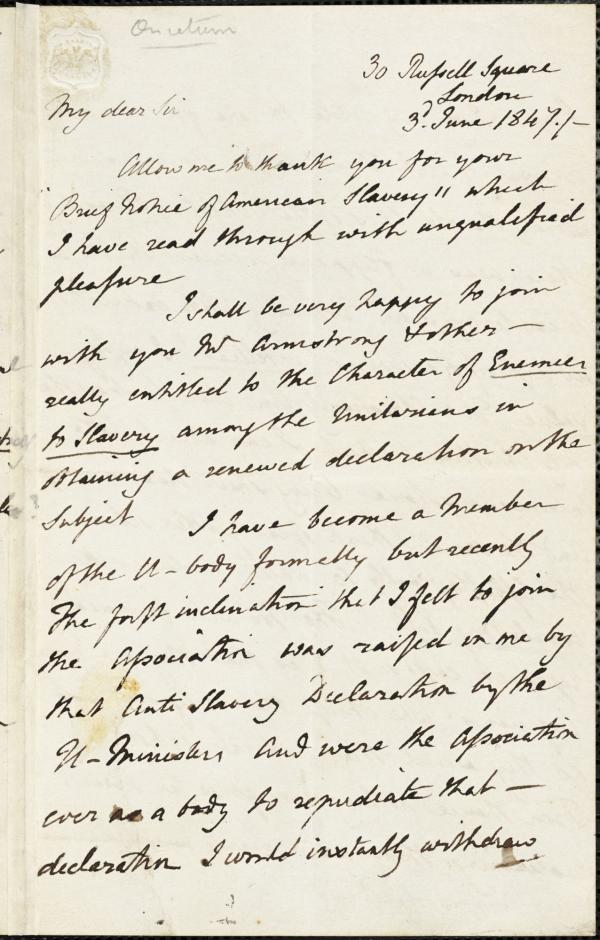 On return
30 Russell Square
London
3d June 1847./-
My dear Sir
Allow me to thank you for your
"Brief Notice of American Slavery" which
I have read through with unqualified
pleasure
I shall be very happy to join
with you Mr Armstrong & other —
really entitled to the Character of Enemies
to Slavery among the Unitarians in
obtaining a renewed declaration on the
subject I have become a Member
of the U-body formally but recently
The first inclination that I felt to join
the Association was raised in me by
that Anti Slavery Declaration by the
U-Ministers and were the Association
ever as a body to repudiate that —
declaration I would instantly withdraw